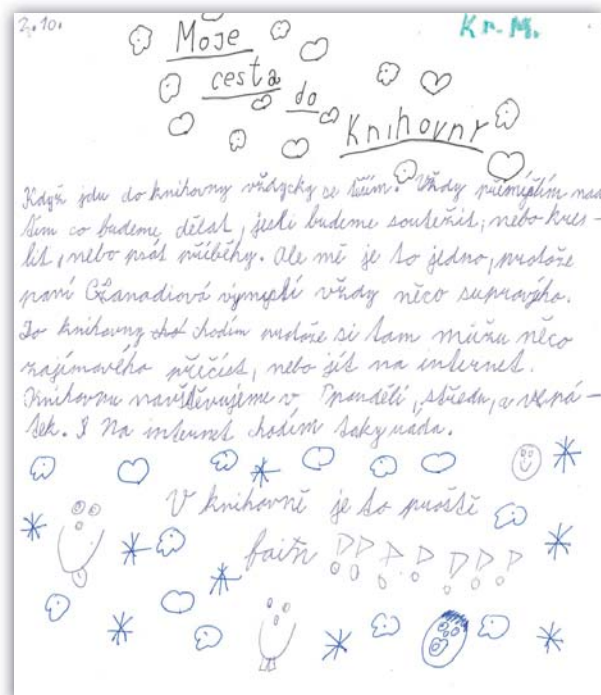 2.10.
Kr. M.
Moje
cesta
do
Knihovny
Když jdu do knihovny vždycky se těším. Vždy přemýšlím nad
tím co budeme dělat, jestli budeme soutěžit, nebo kres-
lit, nebo psát příběhy. Ale mě je to jedno, protože
paní vymyslí vždy něco suprového.
Do knihovny chodím protože si tam můžu něco
zajímavého přečíst, nebo jít na internet.
Knihovnu navštěvujeme v pondělí, středu, a v pá-
tek. I Na internet chodím taky ráda.
V knihovně je to prostě
fajn